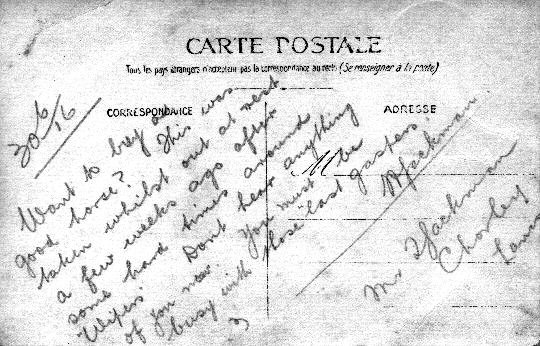 CARTE POSTALE
Tous les pays étrangers n'acceptent pas la correspondance au recto (Se renseigner à la poste)
CORRESPONDANCE
ADRESSE
30/6/16
Want to buy a
good horse? This was
taken whilst out at rest
a few weeks ago after
some hard times around
"Wipers". Dont hear anything
of you now. You must be
busy with those "last gaspers".
M
Mr Jackman
Chorley
Lancs